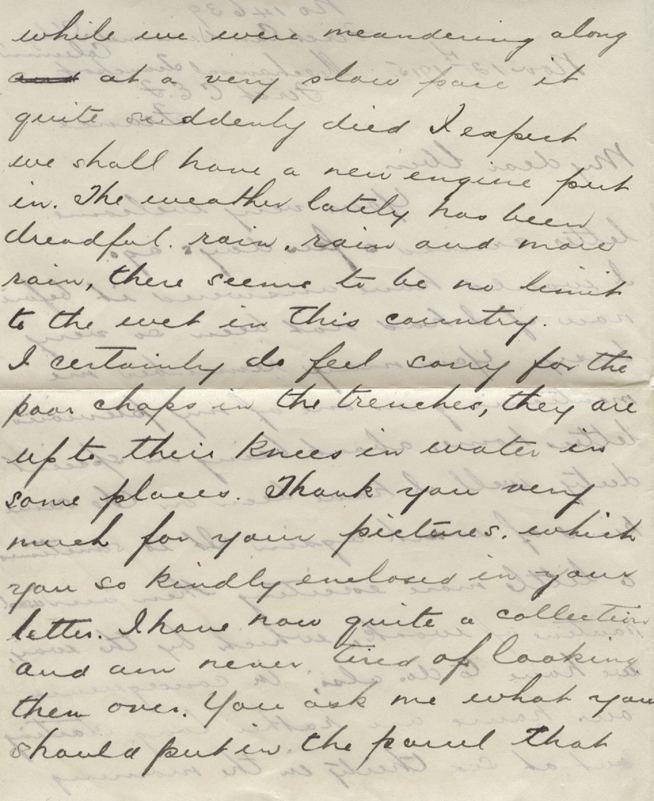 while we were meandering along
and at a very slow pace it
quite suddenly died I expect
we shall have a new engine put
in. The weather lately has been
dreadful. rain, rain and more
rain, there seems to be no limit
to the wet in this country.
I certainly do feel sorry for the
poor chaps in the trenches, they are
up to their knees in water in
some places. Thank you very
much for your pictures. which
you so kindly enclosed in your
letter. I have now quite a collection
and am never tired of looking
them over. You ask me what you
should put in the parcel that